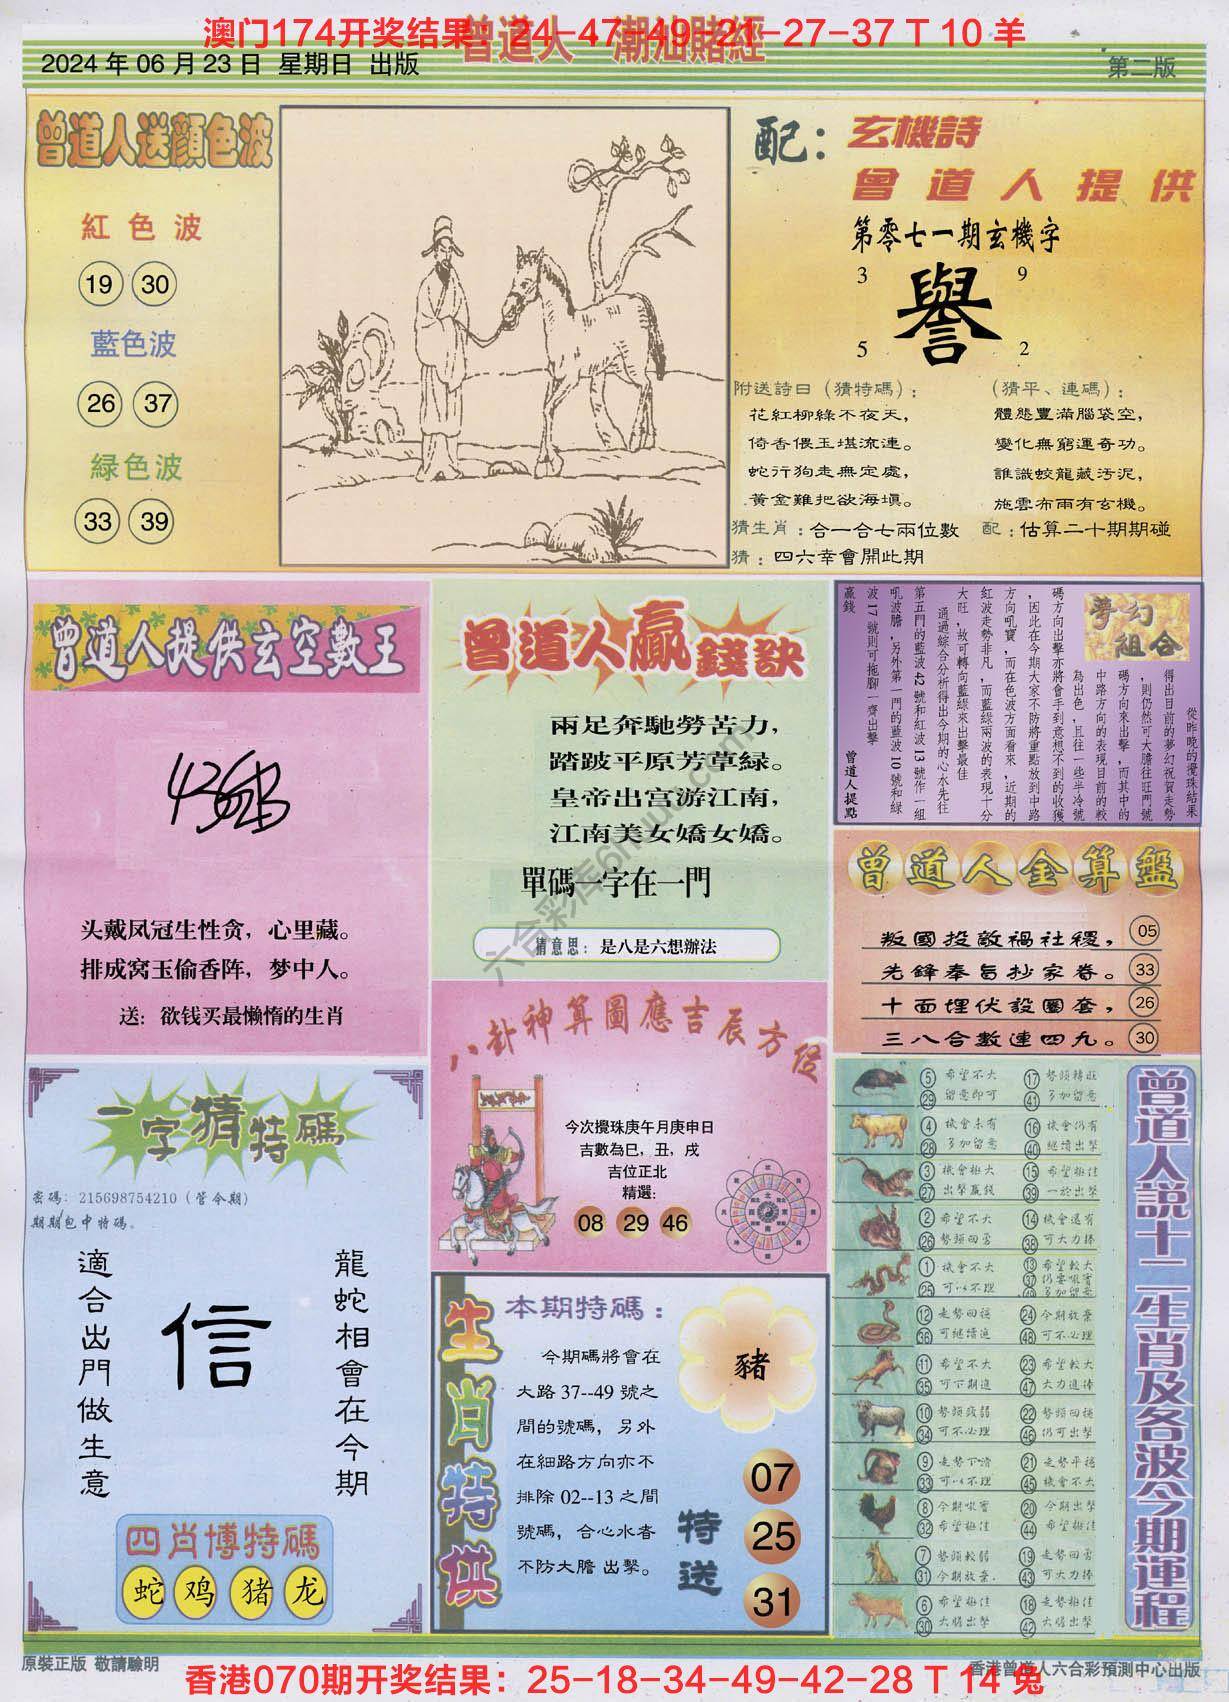 澳门174开奖结果：24-47-49-21-27-37 T 10 羊
曾道人 潮汕賭經
2024 年 06 月 23 日 星期日 出版
第二版
曾道人送顏色波
紅色波
19 30
藍色波
26 37
緑色波
33 39
配：玄機詩
曾道人提供
第零七一期玄機字
3 9
譽
5 2
附送詩日（猜特碼）：
花紅柳綠不夜天，
倚香偎玉堪流連。
蛇行狗走無定處，
黃金難把欲海填。
（猜平、連碼）：
體態豐滿腦袋空，
變化無窮運奇功。
誰識蛟龍藏汚泥，
施雲布雨有玄機。
猜生肖：合一合七兩位數
配：估算二十期期碰
猜：四六幸會開此期
曾道人提供玄空數王
头戴凤冠生性贪，心里藏。
排成窝玉偷香阵，梦中人。
送：欲钱买最懒惰的生肖
曾道人贏錢訣
兩足奔馳勞苦力，
踏跛平原芳草緑。
皇帝出宫游江南，
江南美女嬌女嬌。
單碼一字在一門
猜意思：是八是六想辦法
夢幻組合
從昨晚的攪珠結果
得出目前的夢幻祝賀走勢
，則仍然可大膽往旺門號
碼方向來出擊，而其中的
中路方向的表現目前的較
為出色，且往一些半冷號
碼方向出擊亦將會手到意想不到的收獲
，因此在今期大家不防將重點放到中路
方向吼寶，而在色波方面看來，近期的
紅波走勢非凡，而藍綠兩波的表現十分
大旺，故可轉向藍綠來出擊最佳
通過綜合分析得出今期的心水先往
第五門的藍波42號和紅波13號作一組
吼波膽，另外第一門的藍波10號和綠
波17號則可拖腳一齊出擊
贏錢
曾道人提點
曾道人金算盤
叛國投敵禍社稷， 05
先鋒奉旨抄家眷。 33
十面埋伏設圈套， 26
三八合數連四九。 30
八卦神算圖應吉辰方位
今次攪珠庚午月庚申日
吉數為巳，丑，戌
吉位正北
精選：
08 29 46
一字猜特碼
密碼：215698754210（管今期）
期期包中特碼。
適合出門做生意
信
龍蛇相會在今期
四肖博特碼
蛇 鸡 猪 龙
生肖特供
本期特碼：
今期碼將會在
大路 37--49 號之
間的號碼，另外
在細路方向亦不
排除 02--13 之間
號碼，合心水者
不防大膽 出擊。
豬
特送
07
25
31
曾道人説十二生肖及各波今期運程
5 希望不大 17 勢頭轉旺
29 留意即可 41 多加留意
4 機會未有 16 機會仍有
28 多加留意 40 繼續出擊
3 機會極大 15 希望極佳
27 出擊贏錢 39 一於出擊
2 希望不大 14 機會還有
26 勢頭回勇 38 可大力捧
1 機會不大 13 希望較大
25 可以不理 37 仍要吼實
49 多加留意
12 走勢回穩 24 今期放棄
36 可繼續追 48 可不必理
11 希望不大 23 希望較大
35 可下期追 47 大力追捧
10 勢頭疲弱 22 勢頭回穩
34 可不必理 46 仍可出擊
9 走勢下滑 21 走勢平穩
33 可以不理 45 機會不大
8 今期吼實 20 今期出擊
32 希望極佳 44 希望極佳
7 勢頭較弱 19 走勢回勇
31 今期放棄. 43 可大力捧
6 希望極佳 18 走勢極佳
30 大膽出擊 42 大膽出擊
六合彩库6huu.com
原裝正版 敬請驗明
香港曾道人六合彩預測中心出版
香港070期开奖结果：25-18-34-49-42-28 T 14 兔